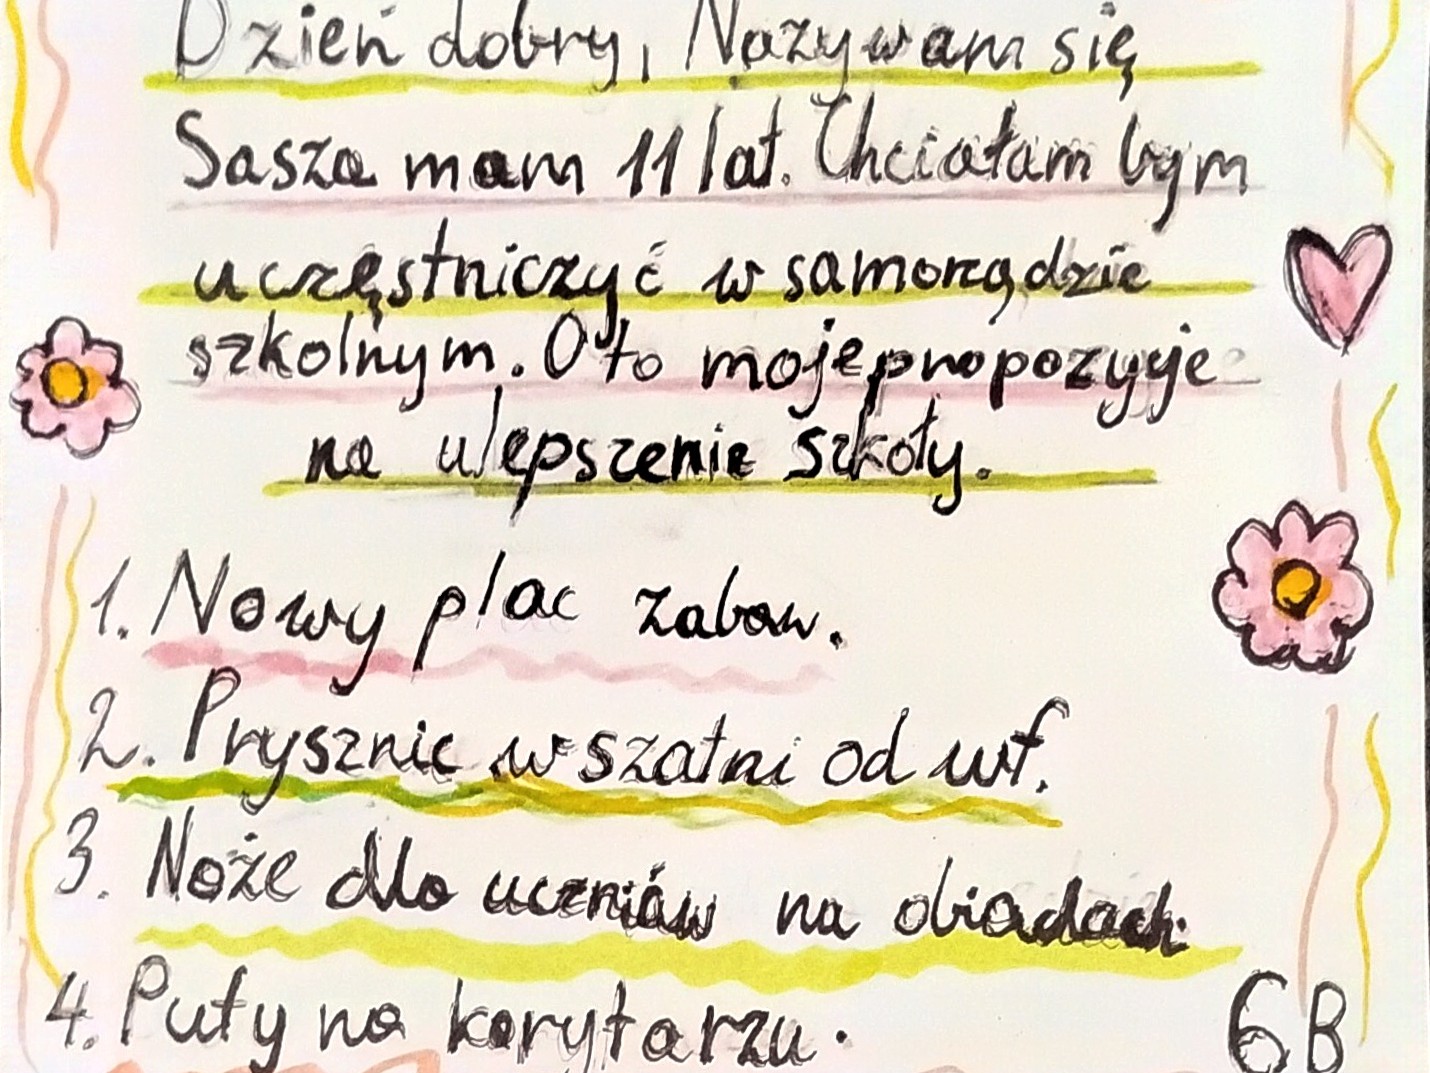 Dzień dobry, Nazywam się
Sasza mam 11 lat. Chciałam bym
uczęstniczyć w samorządzie
szkolnym. Oto moje propozycje
na ulepszenie szkoły.
1. Nowy plac zabaw.
2. Prysznic w szatni od wf.
3. Noże dla uczniów na obiadach.
4. Pufy na korytarzu.
6B